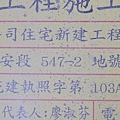 工程施工
司住宅新建工程
安段 547-2 地號
建執照字第 103A
代表人:廖淑芬 電